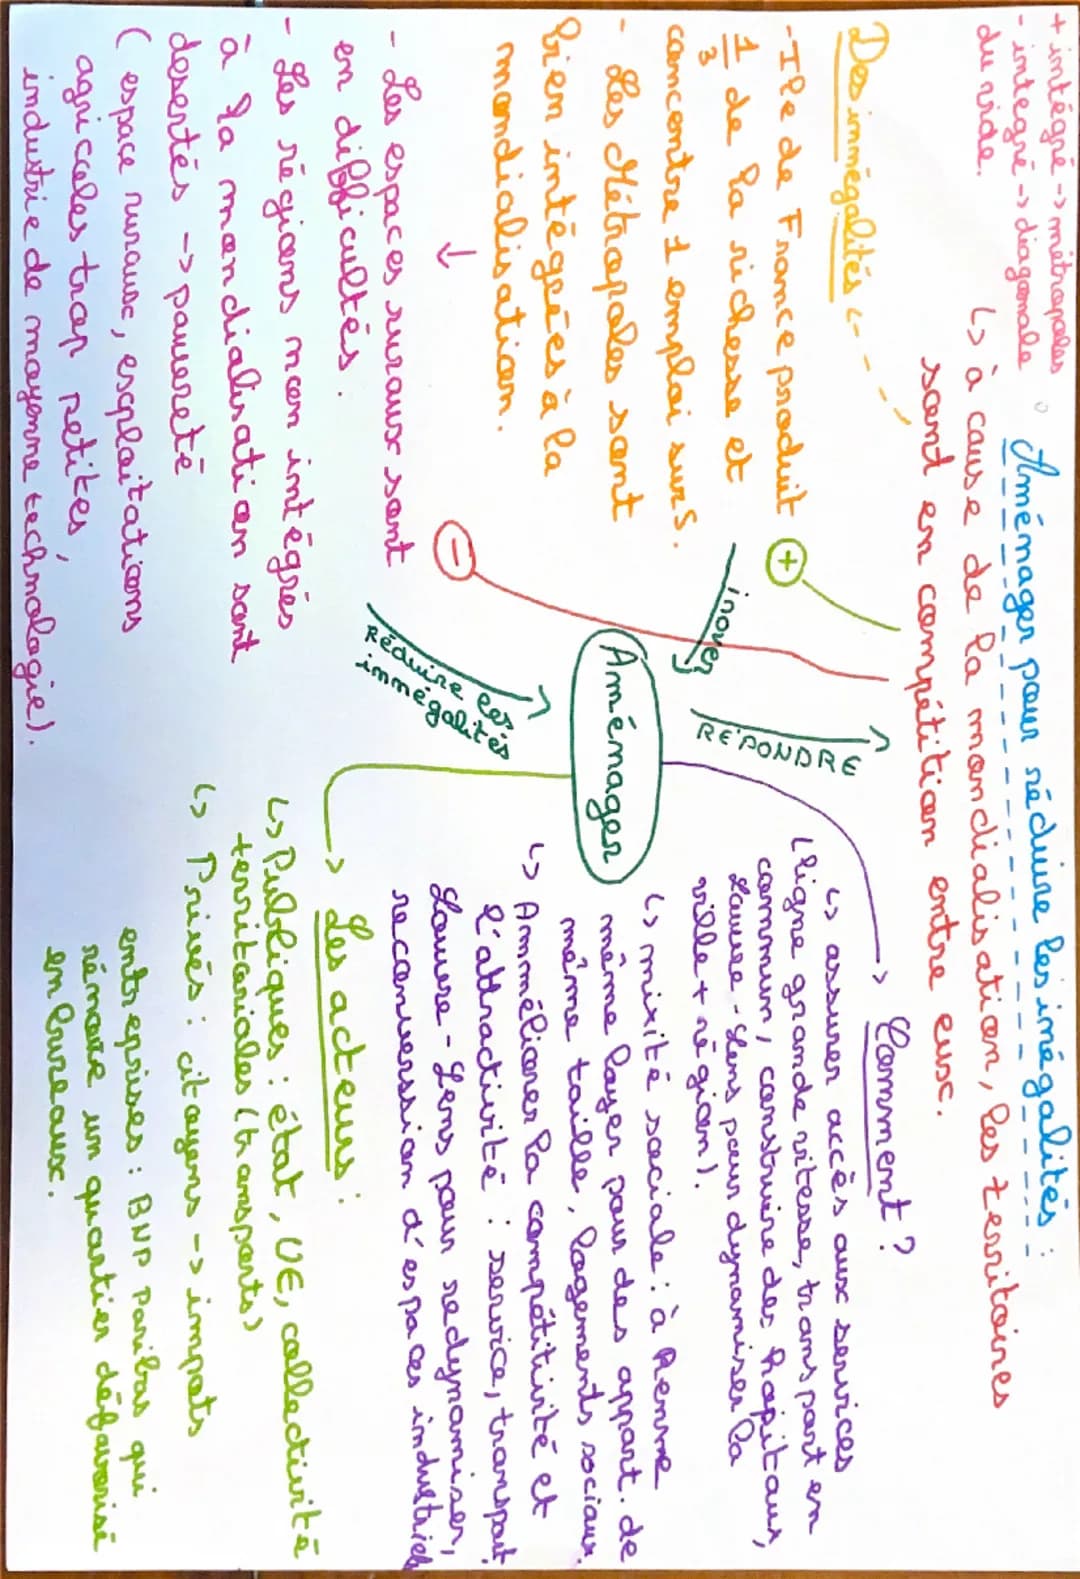 + intégré -> métropoles
- integré -> diagonale
du vide.
Aménager pour réduire les inégalités :
↳ à cause de la mondialisation, les territoires
sont en compétition entre eux.
Des inmégalités
- Ile de France produit
1/3 de la richesse et
concentre 1 emploi sur 5.
- Les Métropoles sont
bien intégrées à la
mondialisation.
↓
- Les espaces ruraux sont
en difficultés.
- Les régions non intégrés
à la mondialisation sont
desertés -> pauvreté
( espace ruraux, exploitations
agricoles trop petites,
industrie de moyenne technologie).
+
-
inover
RÉPONDRE
Aménager
Réduire les
immégalités
-> Comment ?
↳ assurer accès aux services
(ligne grande vitesse, transport en
commun, construire des hopitaux,
Louvre - Lens pour dynamiser la
ville + région).
↳ mixité sociale : à Renne
même loyer pour des appart. de
même taille, logements sociaux.
↳ Amméliorer la compétitivité et
l'attractivité : service, transport,
Louvre - Lens pour redynamiser,
reconversion d'espaces industriels
-> Les acteurs :
↳ Publiques : état, UE, collectivité
territoriales (transports)
↳ Privés : citoyens -> impots
entreprises : BNP Paribas qui
rénove un quartier défavorisé
en bureaux.